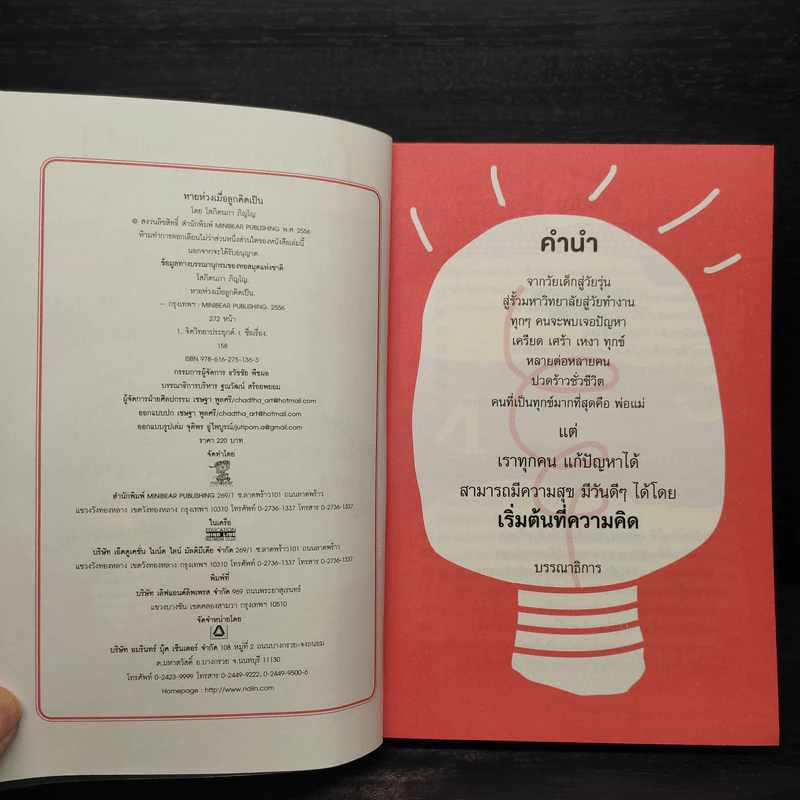 หายห่วงเมื่อลูกคิดเป็น
โดย โสภิตนภา ภิญโญ
© สงวนลิขสิทธิ์ สำนักพิมพ์ MINIBEAR PUBLISHING พ.ศ. 2556
ห้ามทำการลอกเลียนไม่ว่าส่วนหนึ่งส่วนใดของหนังสือเล่มนี้
นอกจากจะได้รับอนุญาต
ข้อมูลทางบรรณานุกรมของหอสมุดแห่งชาติ
โสภิตนภา ภิญโญ.
หายห่วงเมื่อลูกคิดเป็น.
— กรุงเทพฯ : MINIBEAR PUBLISHING, 2556
272 หน้า
1. จิตวิทยาประยุกต์. I. ชื่อเรื่อง.
158
ISBN 978-616-275-136-3
กรรมการผู้จัดการ ธวัชชัย พืชผล
บรรณาธิการบริหาร ฐณวัฒน์ สร้อยพยอม
ผู้จัดการฝ่ายศิลปกรรม เชษฐา พูลศรี/chadtha_art@hotmail.com
ออกแบบปก เชษฐา พูลศรี/chadtha_art@hotmail.com
ออกแบบรูปเล่ม จุติพร อู่ไพบูรณ์/jutiporn.a@gmail.com
ราคา 220 บาท
จัดทำโดย
สำนักพิมพ์ MINIBEAR PUBLISHING 269/1 ซ.ลาดพร้าว101 ถนนลาดพร้าว
แขวงวังทองหลาง เขตวังทองหลาง กรุงเทพฯ 10310 โทรศัพท์ 0-2736-1337 โทรสาร 0-2736-1337
ในเครือ
EDUCATION
MIND LINE
บริษัท เอ็ดดูเคชั่น ไมนด์ ไลน์ มัลติมีเดีย จำกัด 269/1 ซ.ลาดพร้าว101 ถนนลาดพร้าว
แขวงวังทองหลาง เขตวังทองหลาง กรุงเทพฯ 10310 โทรศัพท์ 0-2736-1337 โทรสาร 0-2736-1337
พิมพ์ที่
บริษัท เลิฟแอนด์ลิพเพรส จำกัด 969 ถนนพระยาสุเรนทร์
แขวงบางชัน เขตคลองสามวา กรุงเทพฯ 10510
จัดจำหน่ายโดย
บริษัท อมรินทร์ บุ๊ค เซ็นเตอร์ จำกัด 108 หมู่ที่ 2 ถนนบางกรวย-จงถนอม
ต.มหาสวัสดิ์ อ.บางกรวย จ.นนทบุรี 11130
โทรศัพท์ 0-2423-9999 โทรสาร 0-2449-9222, 0-2449-9500-6
Homepage : http://www.naiin.com
คำนำ
จากวัยเด็กสู่วัยรุ่น
สู่รั้วมหาวิทยาลัยสู่วัยทำงาน
ทุกๆ คนจะพบเจอปัญหา
เครียด เศร้า เหงา ทุกข์
หลายต่อหลายคน
ปวดร้าวชั่วชีวิต
คนที่เป็นทุกข์มากที่สุดคือ พ่อแม่
แต่
เราทุกคน แก้ปัญหาได้
สามารถมีความสุข มีวันดีๆ ได้โดย
เริ่มต้นที่ความคิด
บรรณาธิการ